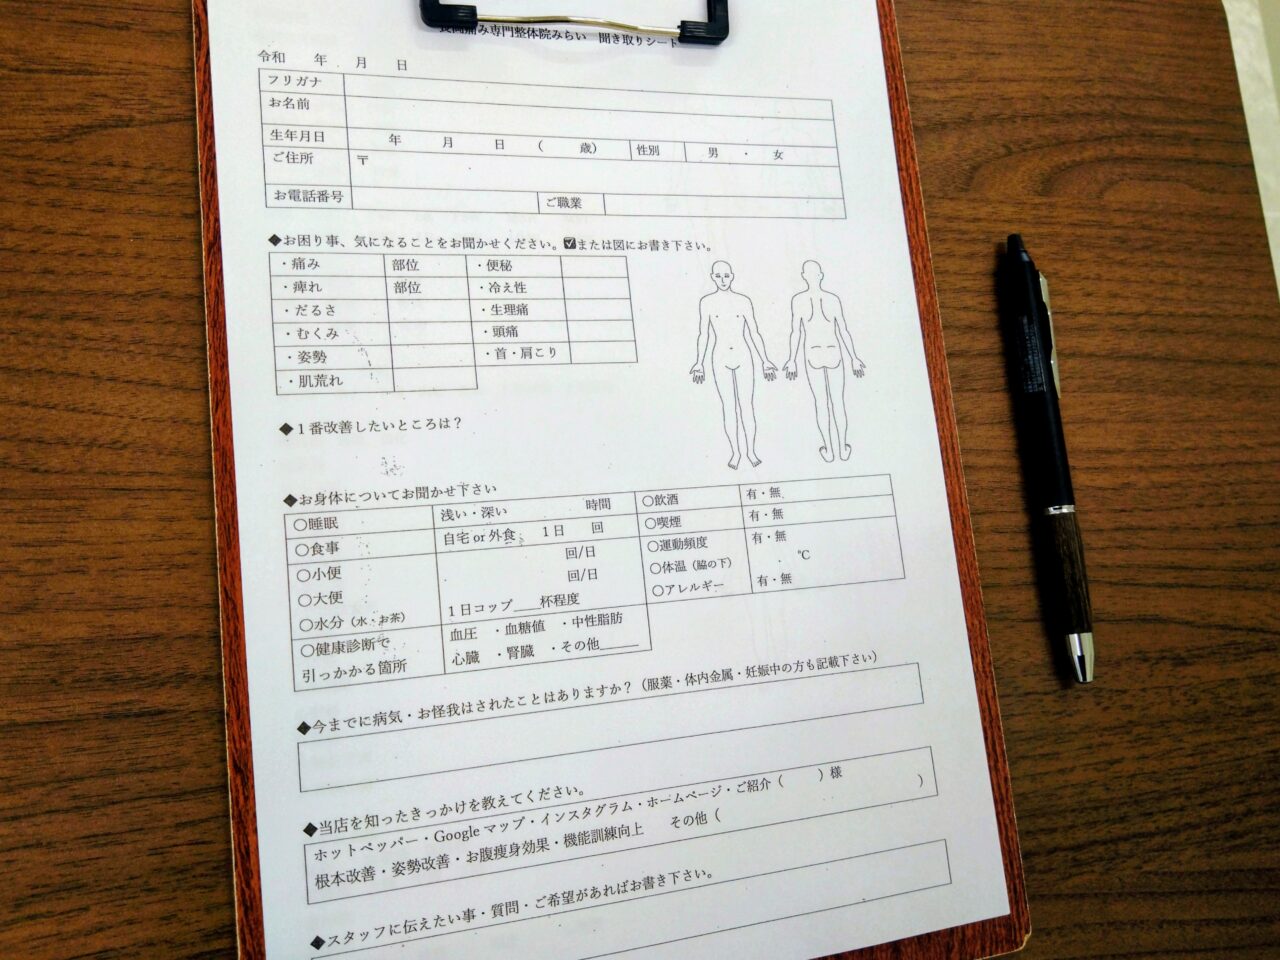 痛み専門整体院みらい　聞き取りシート
令和　年　月　日
フリガナ
お名前
生年月日　年　月　日　(　歳)　性別　男　・　女
ご住所　〒
お電話番号　ご職業
◆お困り事、気になることをお聞かせください。☑または図にお書き下さい。
・痛み　部位　・便秘
・痺れ　部位　・冷え性
・だるさ　・生理痛
・むくみ　・頭痛
・姿勢　・首・肩こり
・肌荒れ
◆１番改善したいところは？
◆お身体についてお聞かせ下さい
〇睡眠　浅い・深い　時間　〇飲酒　有・無
〇食事　自宅 or 外食　１日　回　〇喫煙　有・無
〇小便　回/日　〇運動頻度　有・無
〇大便　回/日　〇体温（脇の下）　．　℃
〇水分（水・お茶）　１日コップ____杯程度　〇アレルギー　有・無
〇健康診断で　血圧　・血糖値　・中性脂肪
引っかかる箇所　心臓　・腎臓　・その他______
◆今までに病気・お怪我はされたことはありますか？（服薬・体内金属・妊娠中の方も記載下さい）
◆当店を知ったきっかけを教えてください。
ホットペッパー・Google マップ・インスタグラム・ホームページ・ご紹介（　　）様
根本改善・姿勢改善・お腹痩身効果・機能訓練向上　その他（　　）
◆スタッフに伝えたい事・質問・ご希望があればお書き下さい。